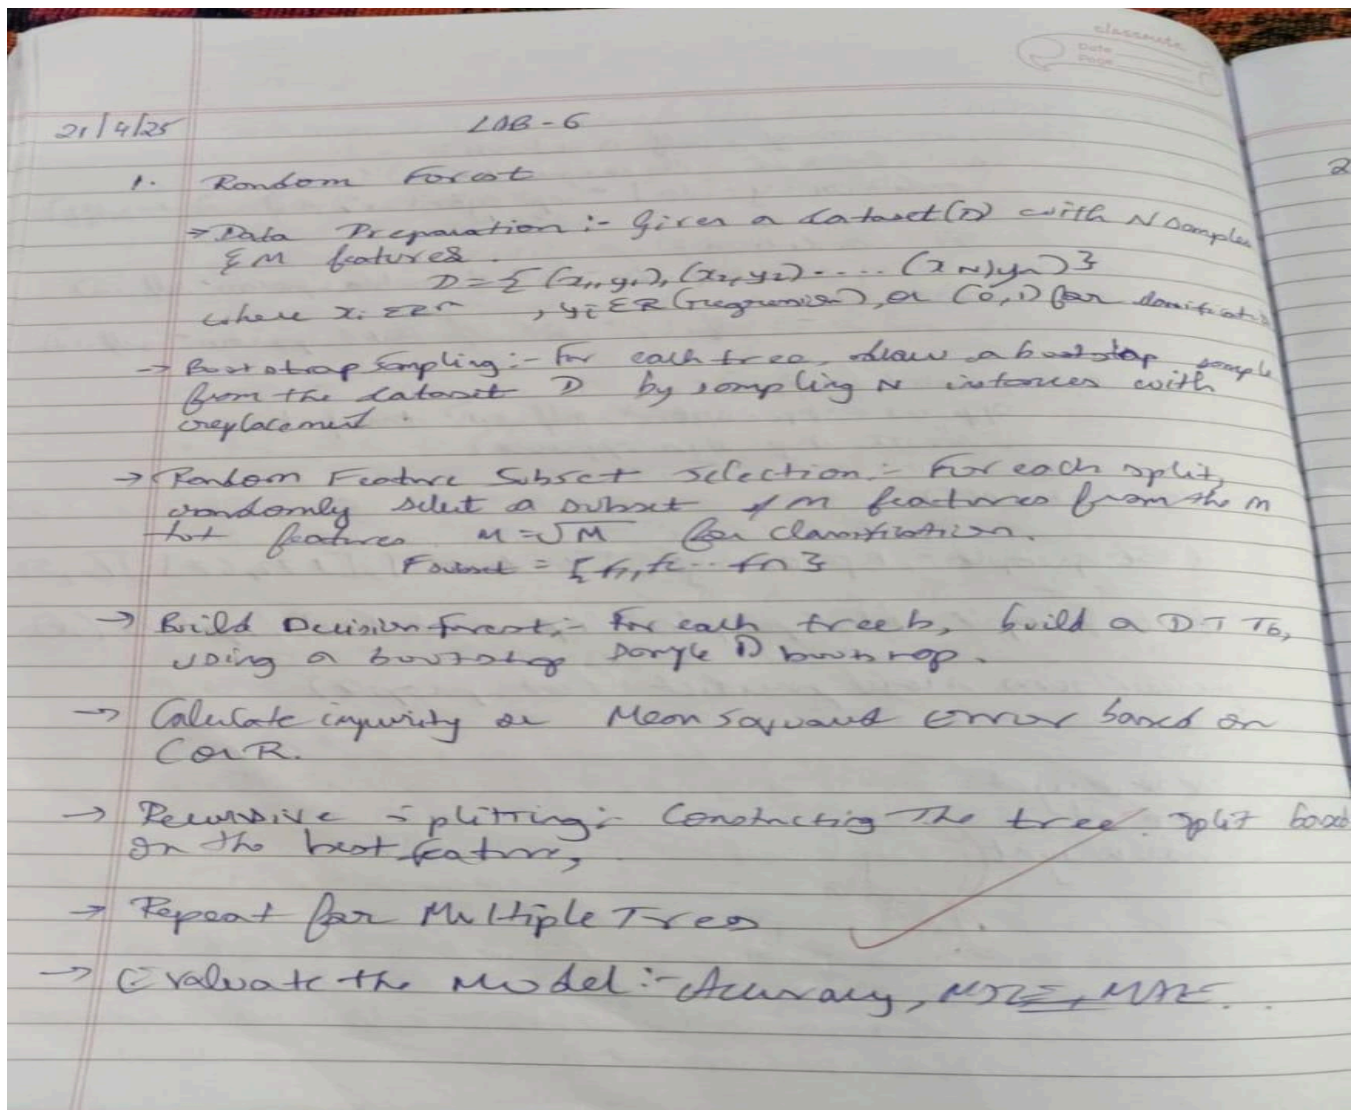 classmate
Date
Page
21/4/25
LAB-6
2
1. Random Forest
→ Data Preparation :- Given a dataset(D) with N samples
& M features.
D = { (x1, y1), (x2, y2) - - .. (xN, yn) }
where xi ∈ R^m , yi ∈ R (regression), or (0,1) for classification
→ Bootstrap Sampling:- For each tree, draw a bootstrap sample
from the dataset D by sampling N instances with
replacement.
→ Random Feature Subset Selection:- For each split,
randomly select a subset of m features from the m
tot features m = √M for classification.
Fsubset = {f1, f2 .. fn}
→ Build Decision forest:- For each tree b, build a DT Tb,
using a bootstrap sample D bootstrap.
→ Calculate impurity or Mean Squared Error based on
C or R.
→ Recursive splitting:- Constructing The tree split based
on the best feature,
→ Repeat for Multiple Trees
→ Evaluate the Model :- Accuracy, MSE, MAE.